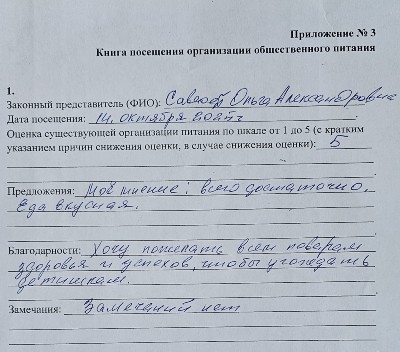 Приложение № 3
Книга посещения организации общественного питания
1.
Законный представитель (ФИО): Ольга Александровна
Дата посещения: 14. октября
Оценка существующей организации питания по шкале от 1 до 5 (с кратким
указанием причин снижения оценки, в случае снижения оценки): 5
Предложения: Моё мнение: всего достаточно.
Еда вкусная.
Благодарности: Хочу пожелать всем поварам
здоровья и успехов, чтобы угождать
детишкам.
Замечания: Замечаний нет